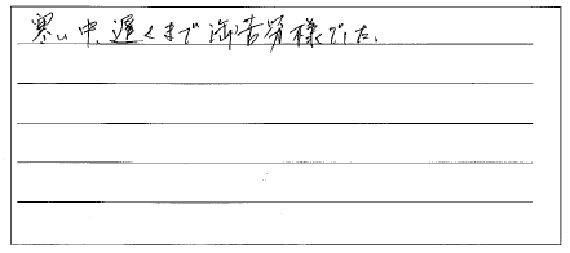 寒い中、遅くまで御苦労様でした。